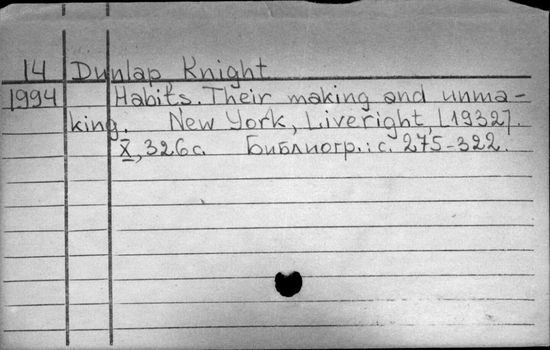 14 Dunlap Knight
1994 Habits. Their making and unma-
king. New York, Liveright, [1932].
X, 326 с. Библиогр.: с. 275-322.